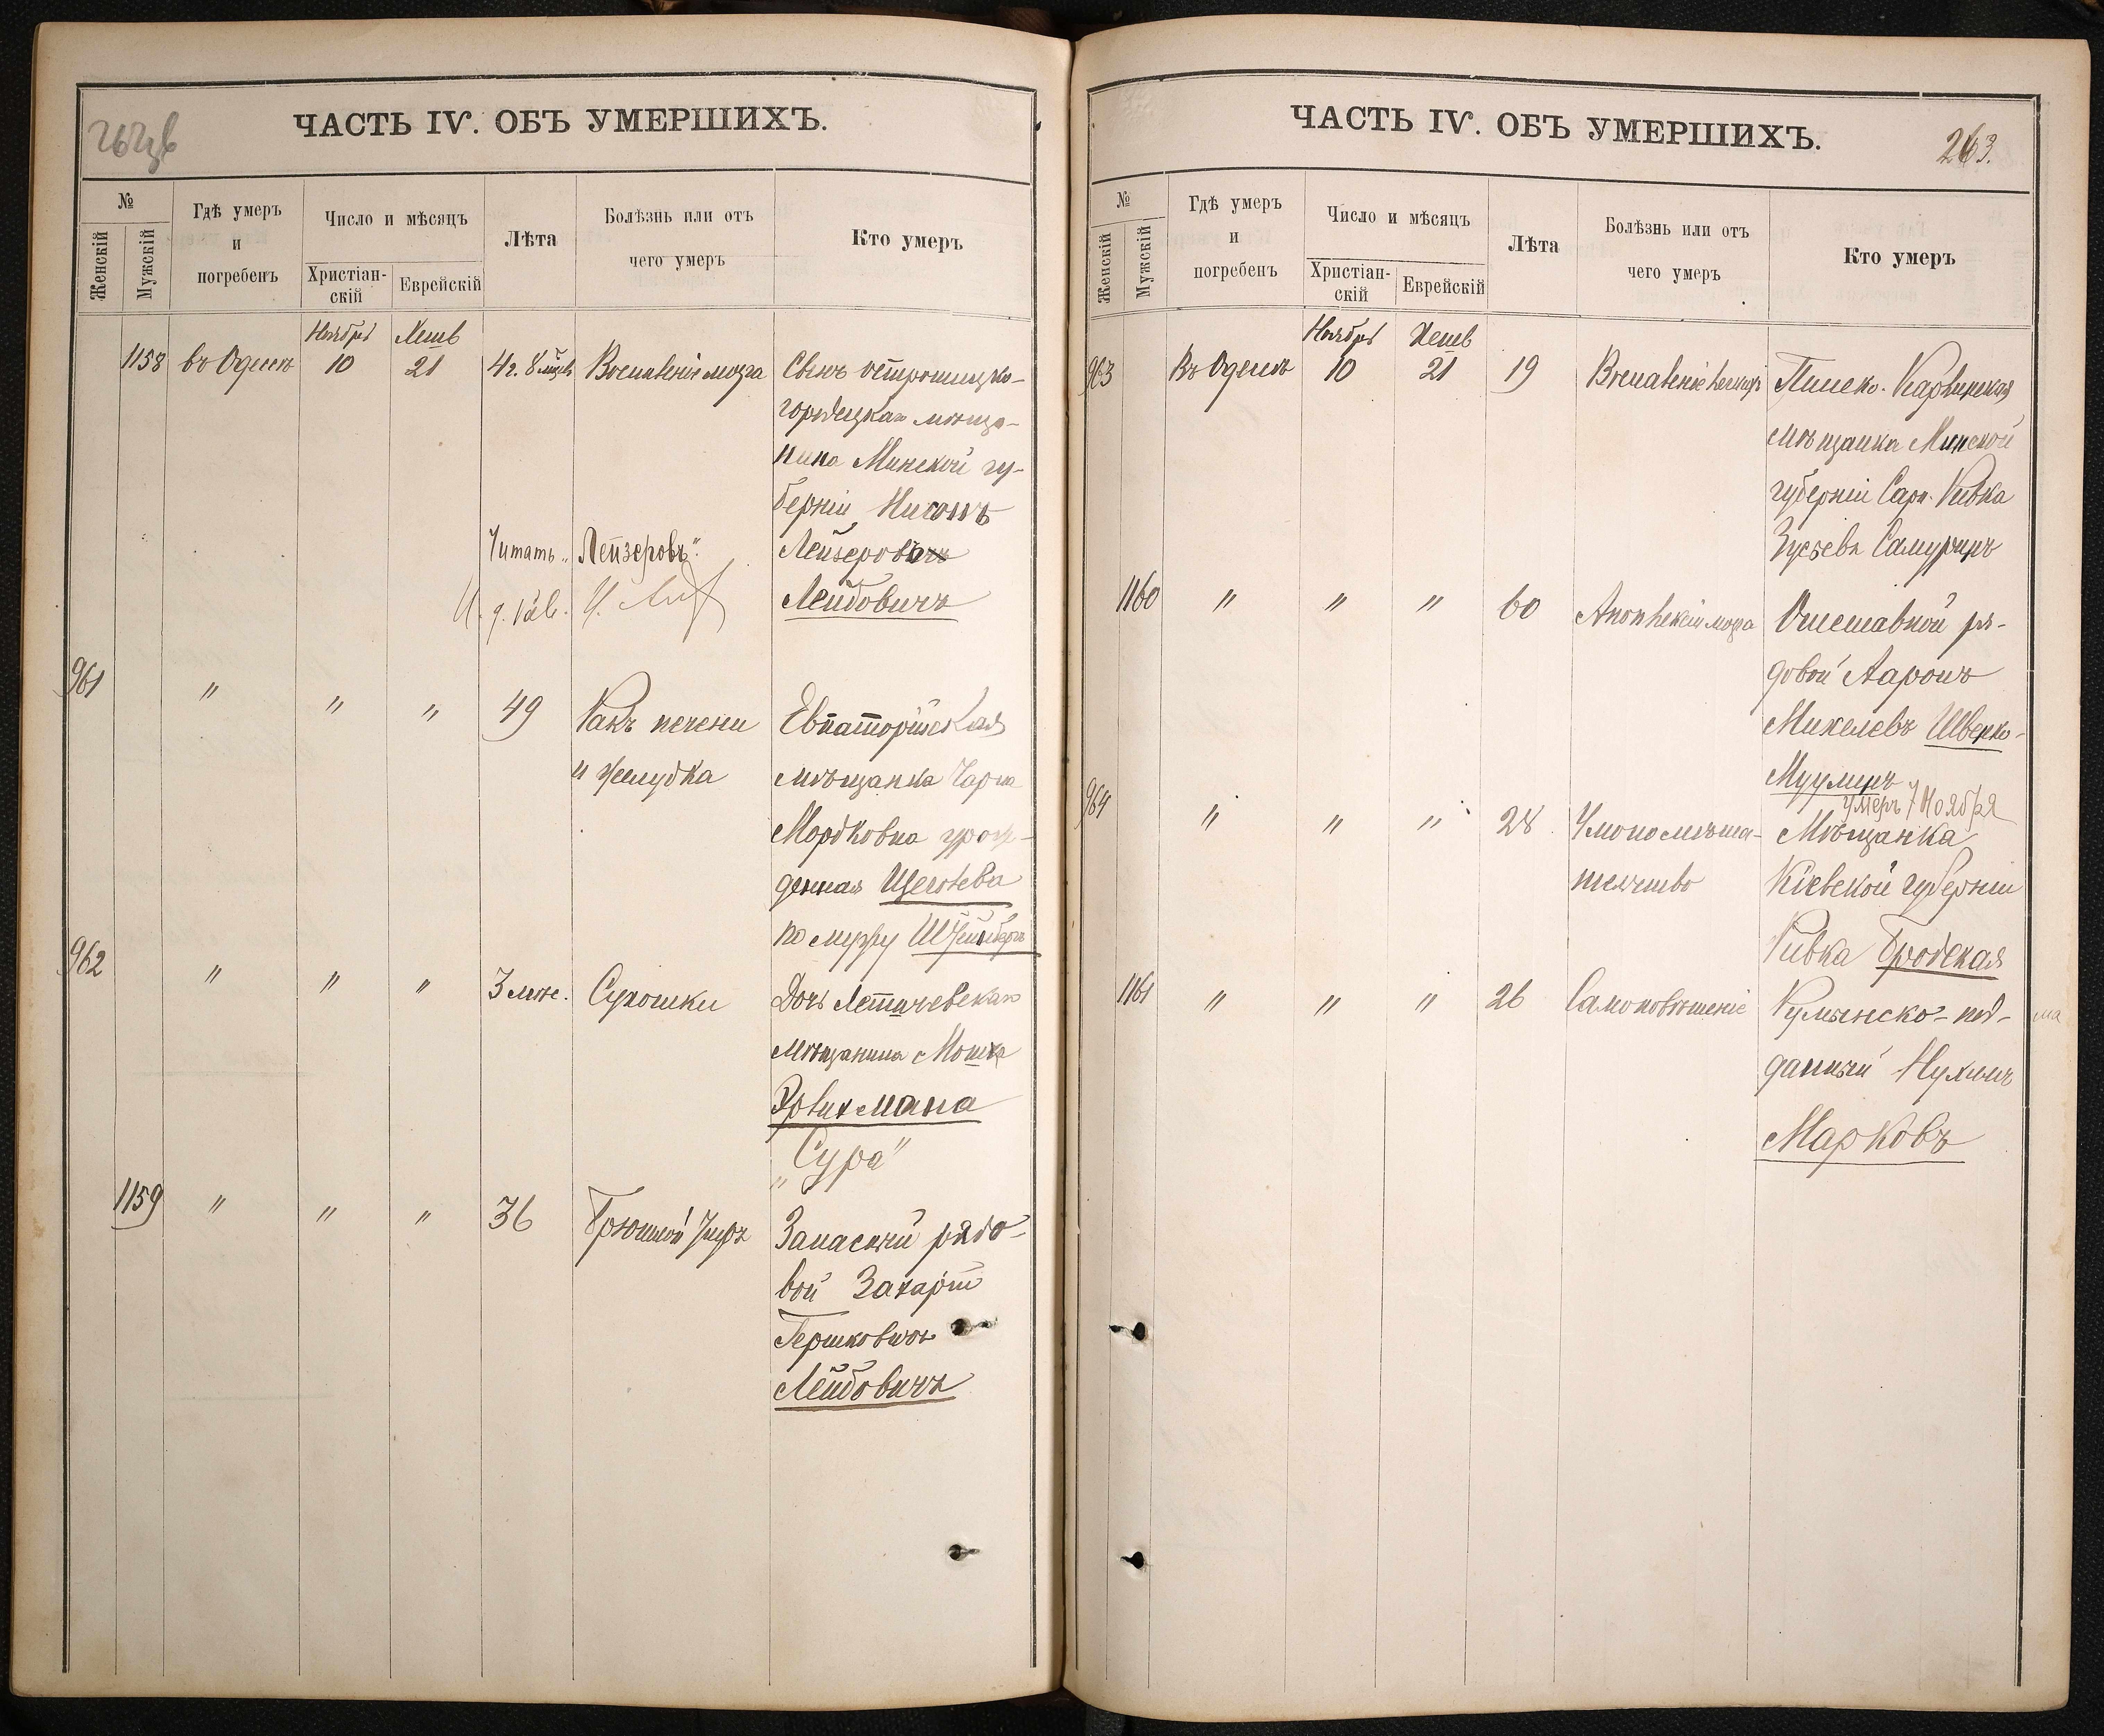 ЧАСТЬ IV. ОБЪ УМЕРШИХЪ.
№
Женскій
Мужскій
Гдѣ умеръ
и
погребенъ
Число и мѣсяцъ
Христіан-
скій
Еврейскій
Лѣта
Болѣзнь или отъ
чего умеръ
Кто умеръ
Ноябрь Хешв
1158 въ Одессѣ 10 21 4 г. 8 мѣс. Воспаленіе мозга Сынъ Острошицко-
городецкаго мѣща-
нина Минской гу-
берніи Нисонъ
Читать „Лейзеровъ“. Лейзеровичъ
Лейбовичъ
961 " " " 49 Ракъ печени Евпаторійская
и желудка мѣщанка Чарна
Мордковна урож-
денная Щеголева
по мужу
962 " " " 3 мѣс. Сухотки Дочь Летичевскаго
мѣщанина Мошка
„Сура“
1159 " " " 36 Брюшной Тифъ Запасный рядо-
вой Захарій
Гершковичъ
Лейбовичъ
ЧАСТЬ IV. ОБЪ УМЕРШИХЪ.
263.
№
Женскій
Мужскій
Гдѣ умеръ
и
погребенъ
Число и мѣсяцъ
Христіан-
скій
Еврейскій
Лѣта
Болѣзнь или отъ
чего умеръ
Кто умеръ
Ноябрь Хешв
963 Въ Одессѣ 10 21 19 Воспаленіе легкихъ Пинско-Карлинская
мѣщанка Минской
губерніи Сара-Ривка
Зусьева Самуринъ
1160 " " " 60 Апоплексія мозга Отставной ря-
довой Ааронъ
Михелевъ
умеръ 7 Ноября
964 " " " 28 Умопомѣша- Мѣщанка
тельство Кіевской губерніи
Ривка Бродская
1161 " " " 26 Самоповѣшеніе Румынско-под-
данный Нухимъ
Марковъ